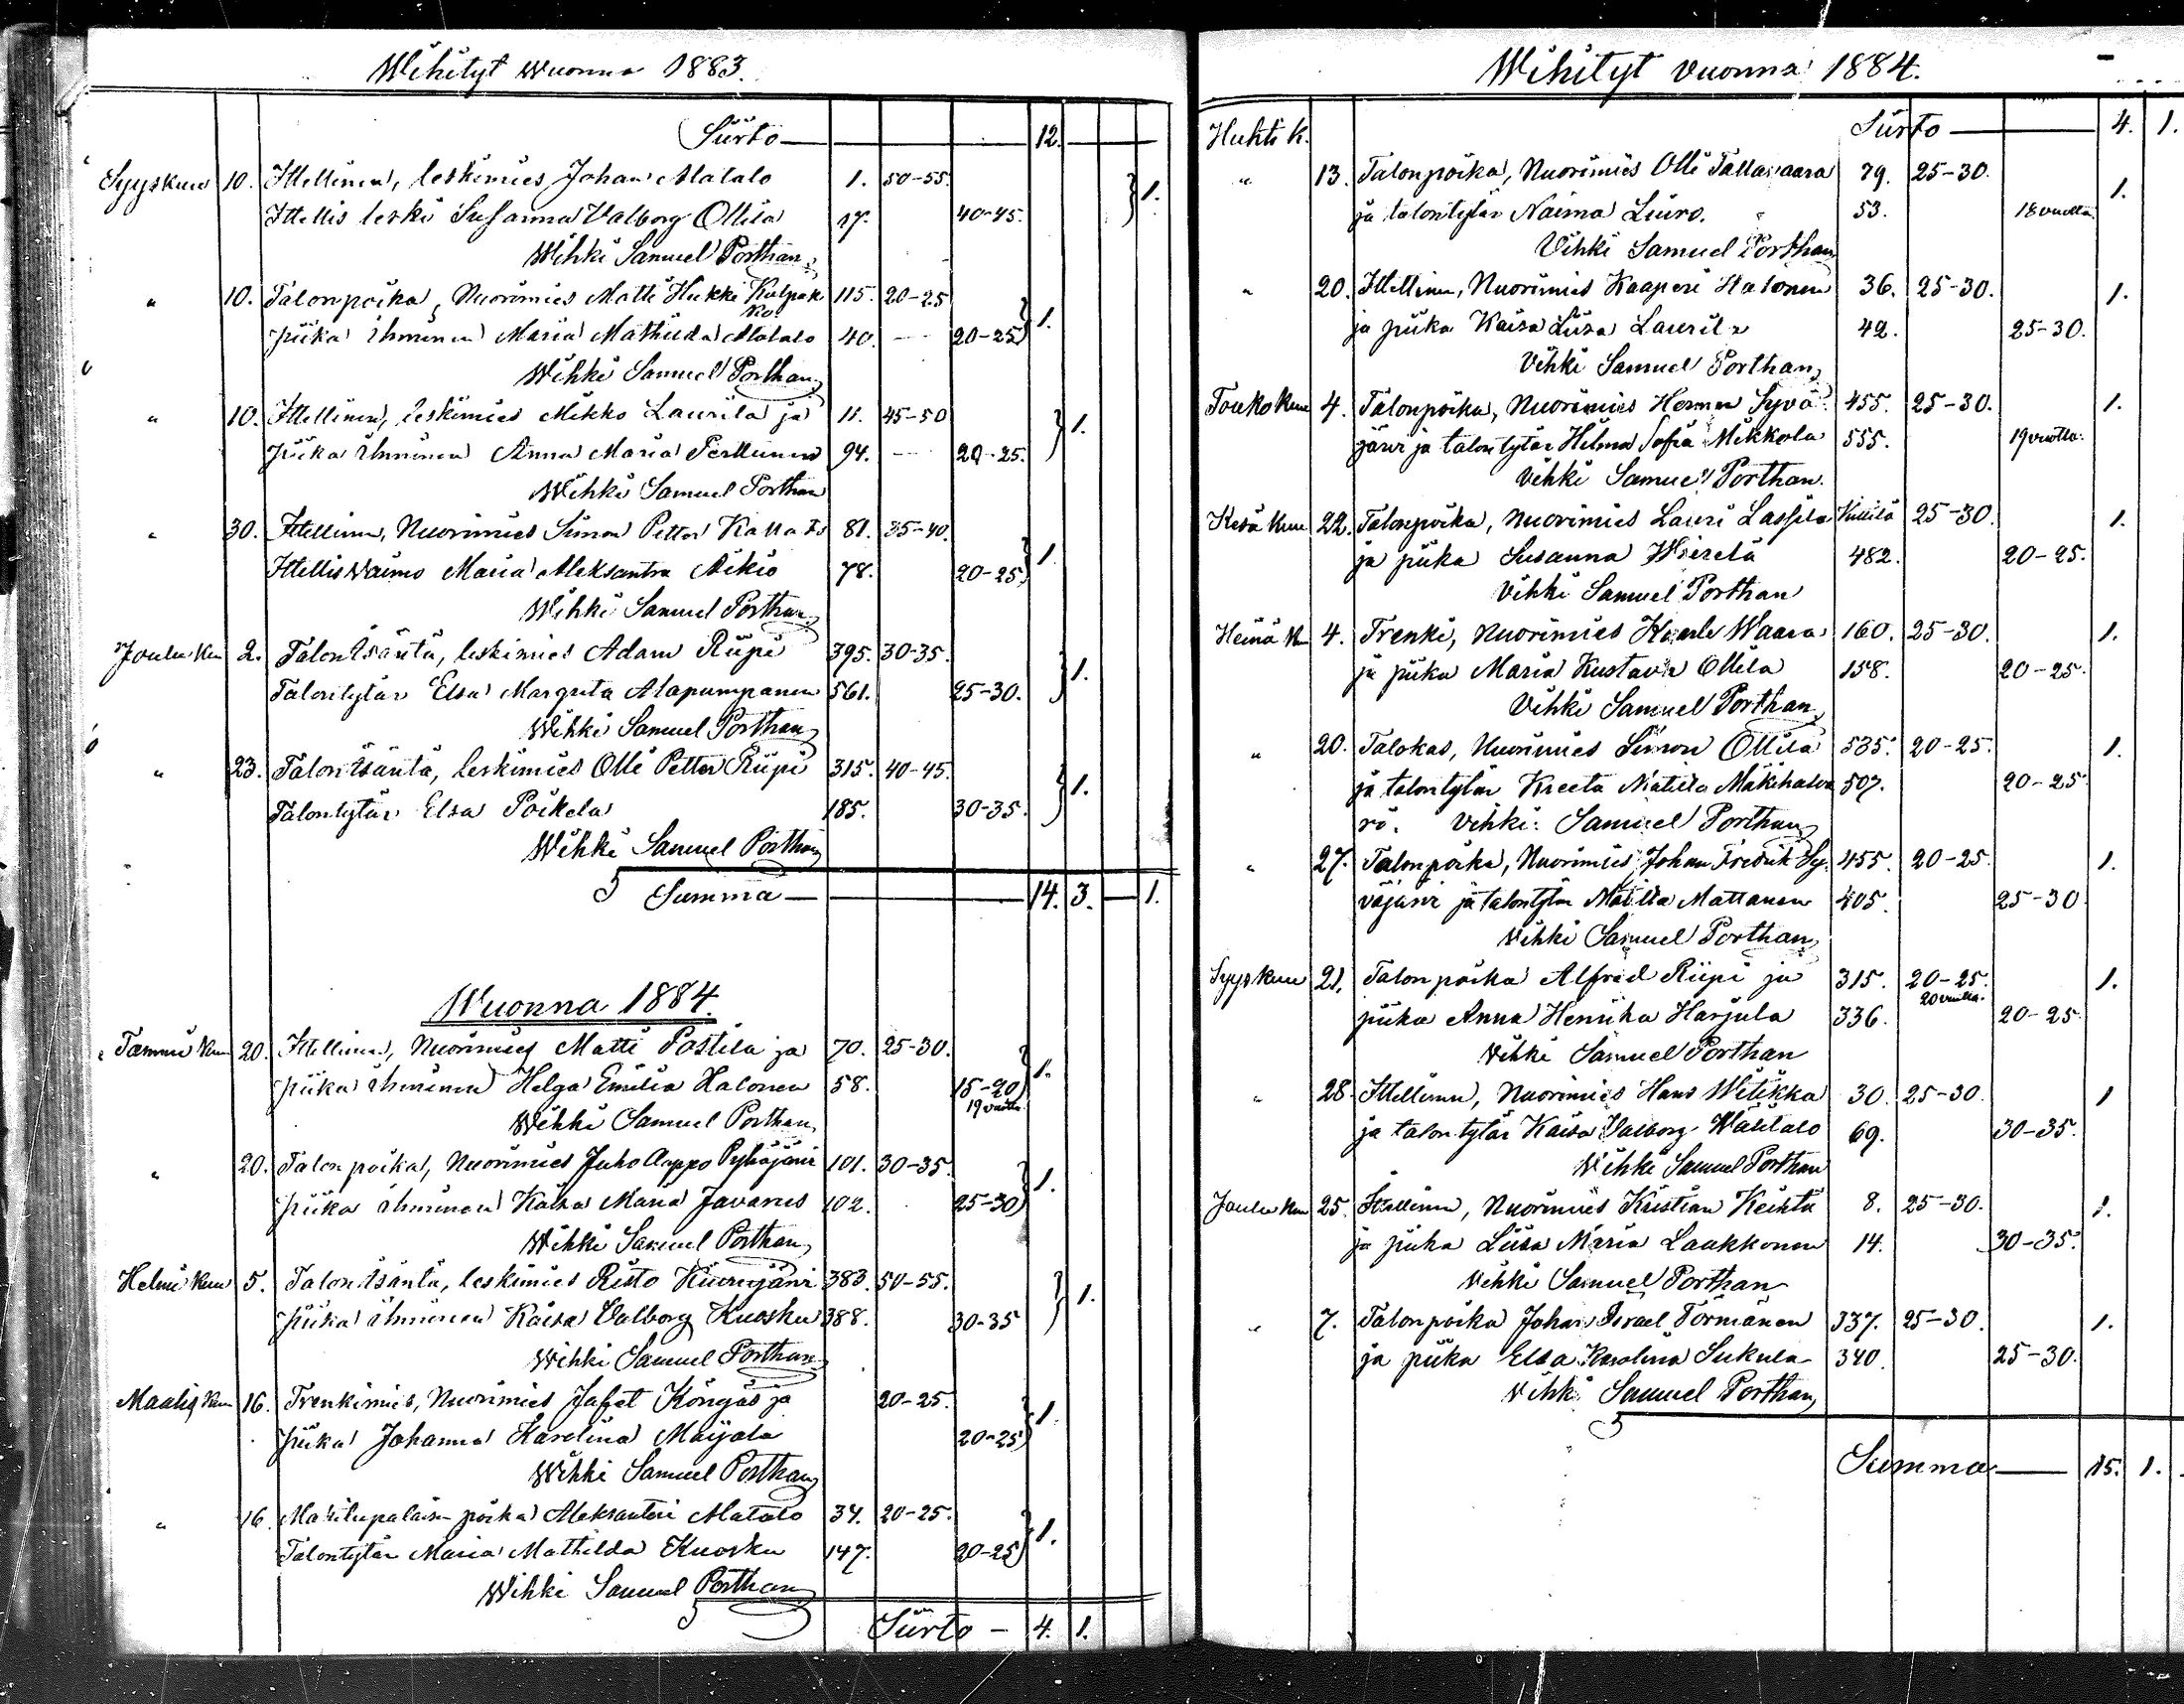 Wihityt wuonna 1883.
Siirto — 12.
Syyskuu 10. Ittellinen, leskimies Johan Alatalo 1. 50-55. 1.
Ittellis leski Susanna Valborg Ollila 27. 40-45.
Wihki Samuel Porthan
" 10. Talonpoika, Nuorimies Matti Hukki Kulpak 115. 20-25 1.
ko
piika ihminen Maria Mathilda Alatalo 40. — 20-25
Wihki Samuel Porthan
" 10. Ittellinen, leskimies Mikko Laurila ja 11. 45-50 1.
Piika ihminen Anna Maria Perttunen 94. — 20-25.
Wihki Samuel Porthan
" 30. Ittellinen, Nuorimies Simon Petter 81. 35-40. 1.
Ittellis vaimo Maria Aleksantra Aikio 78. 20-25
Wihki Samuel Porthan
Joulukuu 2. Talon isäntä, leskimies Adam Riipi 395. 30-35. 1.
Talontytär Elsa Margreta Alapumpanen 561. 25-30.
Wihki Samuel Porthan
" 23. Talon isäntä, leskimies Olli Petter Riipi 315. 40-45. 1.
Talontytär Elsa Poikela 185. 30-35.
Wihki Samuel Porthan
Summa — 14. 3. — 1.
Wuonna 1884.
Tammi kuu 20. Ittellinen, Nuorimies Matti Postila ja 70. 25-30. 1.
piika ihminen Helga Emilia Halonen 58. 15-20
19 vuotta
Wihki Samuel Porthan
" 20. Talon poika, Nuorimies Juho Aappo Pyhäjärvi 101. 30-35. 1.
piika ihminen Kaisa Maria Javarus 102. 25-30
Wihki Samuel Porthan
Helmi kuu 5. Talon isäntä, leskimies Risto Kiurujärvi 383. 50-55. 1.
piika ihminen Kaisa Valborg Kuosku 388. 30-35
Wihki Samuel Porthan
Maalis kuu 16. Trenkimies, Nuorimies Jafet Köngäs ja 20-25. 1.
Piika Johanna Karolina Maijala 20-25
Wihki Samuel Porthan
" 16. Mäkitupalaisen poika Aleksanteri Alatalo 34. 20-25. 1.
Talontytär Maria Mathilda Kuosku 147. 20-25
Wihki Samuel Porthan
Siirto — 4. 1.
Wihityt vuonna 1884.
Huhti k. Siirto — 4. 1.
" 13. Talonpoika, Nuorimies Olli Tallavaara 79. 25-30. 1.
ja talontytär Naima Liiro. 53. 18 vuotta.
Vihki Samuel Porthan
" 20. Ittellinen, Nuorimies Kaaperi Halonen 36. 25-30. 1.
ja piika Kaisa Liisa Laurila 42. 25-30.
Vihki Samuel Porthan
Toukokuu 4. Talonpoika, Nuorimies Herman Syvä 455. 25-30. 1.
järvi ja talontytär Hilma Sofia Mikkola 555. 19 vuotta.
Vihki Samuel Porthan.
Kesä kuu 22. Talonpoika, Nuorimies Lauri Lassila Kittilä 25-30. 1.
ja piika Susanna Wierelä 482. 20-25.
Vihki Samuel Porthan
Heinä k. 4. Trenki, Nuorimies Kaarle Waara 160. 25-30. 1.
ja piika Maria Kustava Ollila 158. 20-25.
Vihki Samuel Porthan
" 20. Talokas, Nuorimies Simon Ollila 535. 20-25. 1.
ja talontytär Kreeta Matilda Mäkihalva 507. 20-25
rö. Vihki: Samuel Porthan
" 27. Talonpoika, Nuorimies Johan Fredrik Sy- 455. 20-25. 1.
väjärvi ja talontytär Matilta Mattanen 405. 25-30
Vihki Samuel Porthan
Syys kuu 21. Talon poika Alfred Riipi ja 315. 20-25. 1.
20 vuotta.
piika Anna Henrika Harjula 336. 20-25
Vihki Samuel Porthan
" 28. Ittellinen, Nuorimies Hans Witikka 30. 25-30. 1
ja talontytär Kaisa Valborg Wälitalo 69. 30-35.
Vihki Samuel Porthan
Joulu kuu 25. Ittellinen, Nuorimies Kristian Keihtä 8. 25-30. 1.
ja piika Liisa Maria Laakkonen 14. 30-35.
Vihki Samuel Porthan
" 7. Talonpoika Johan Israel Törmänen 337. 25-30. 1.
ja piika Elsa Karolina Sukula 340. 25-30.
Vihki Samuel Porthan
Summa — 15. 1.